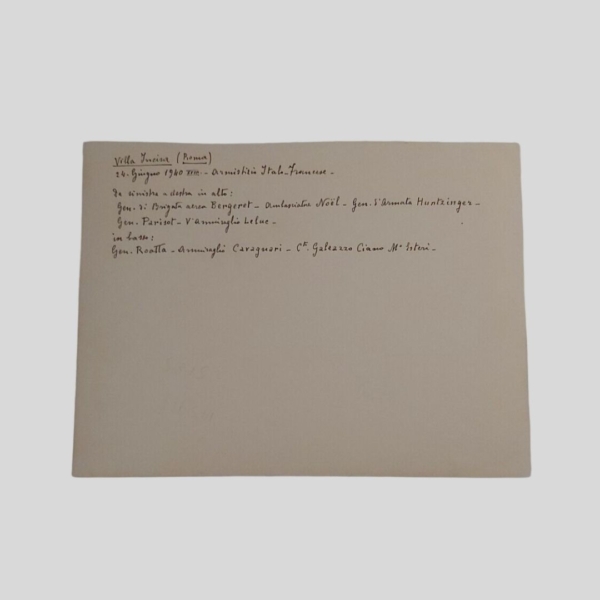 Villa Incisa (Roma)
24. Giugno 1940 XVIII. - Armistizio Italo-Francese -
Da sinistra a destra in alto:
Gen. di Brigata aerea Bergeret - ambasciatore Noël - Gen. d'Armata Huntzinger -
Gen. Parisot - V. ammiraglio Leluc -
in basso:
Gen. Roatta - Ammiraglio Cavagnari - Cte. Galeazzo Ciano Mo. Esteri -